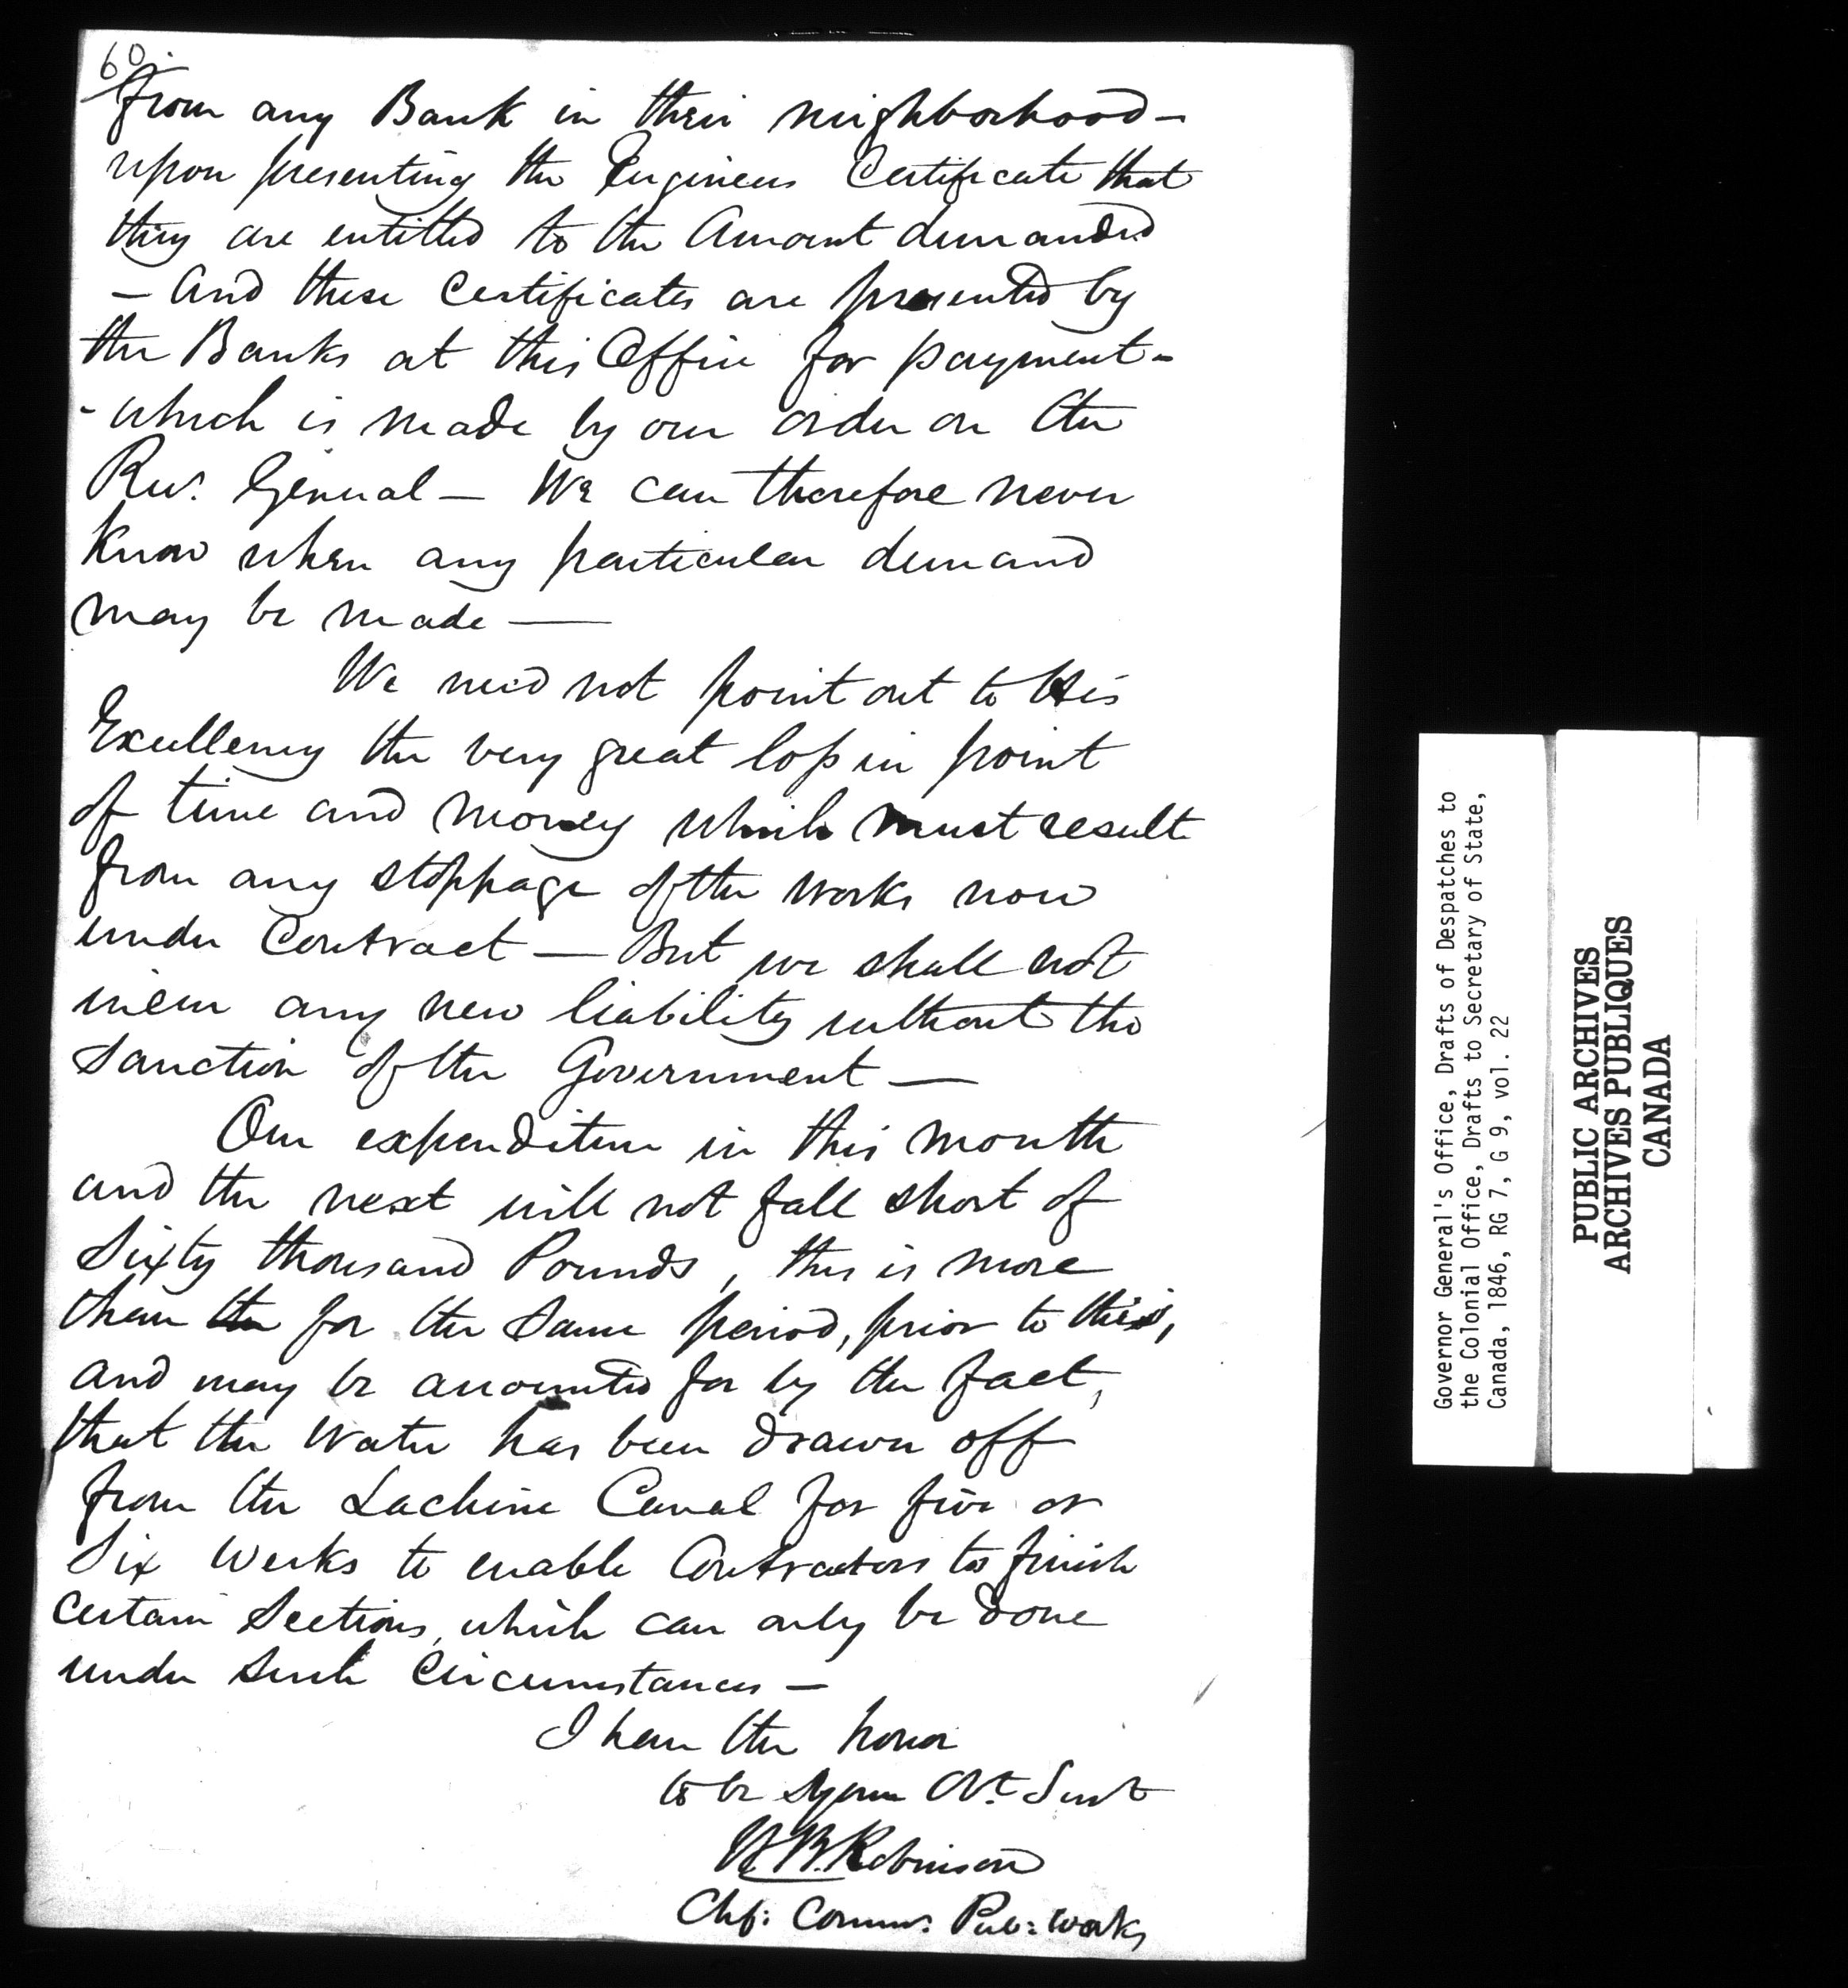 60
from any Bank in their neighborhood -
upon presenting the Engineers Certificate that
they are entitled to the Amount demanded
- and these Certificates are presented by
the Banks at this Office for payment -
- which is made by our order on the
Recr. General - We can therefore never
know when any particular demand
may be made —
We need not point out to His
Excellency the very great loss in point
of time and money which must result
from any stoppage of the works now
under Contract — But we shall not
incur any new liability without the
Sanction of the Government —
Our expenditure in this month
and the next will not fall short of
Sixty thousand Pounds, this is more
than the for the Same period, prior to this,
and may be accounted for by the fact,
that the Water has been drawn off
from the Lachine Canal for five or
Six Weeks to enable Contractors to finish
Certain Sections, which can only be done
under such Circumstances -
I have the honor
to be Your Obt. Servt
W. B. Robinson
Chf: Commr. Pub: Works
Governor General's Office, Drafts of Despatches to
the Colonial Office, Drafts to Secretary of State,
Canada, 1846, RG 7, G 9, vol. 22
PUBLIC ARCHIVES
ARCHIVES PUBLIQUES
CANADA